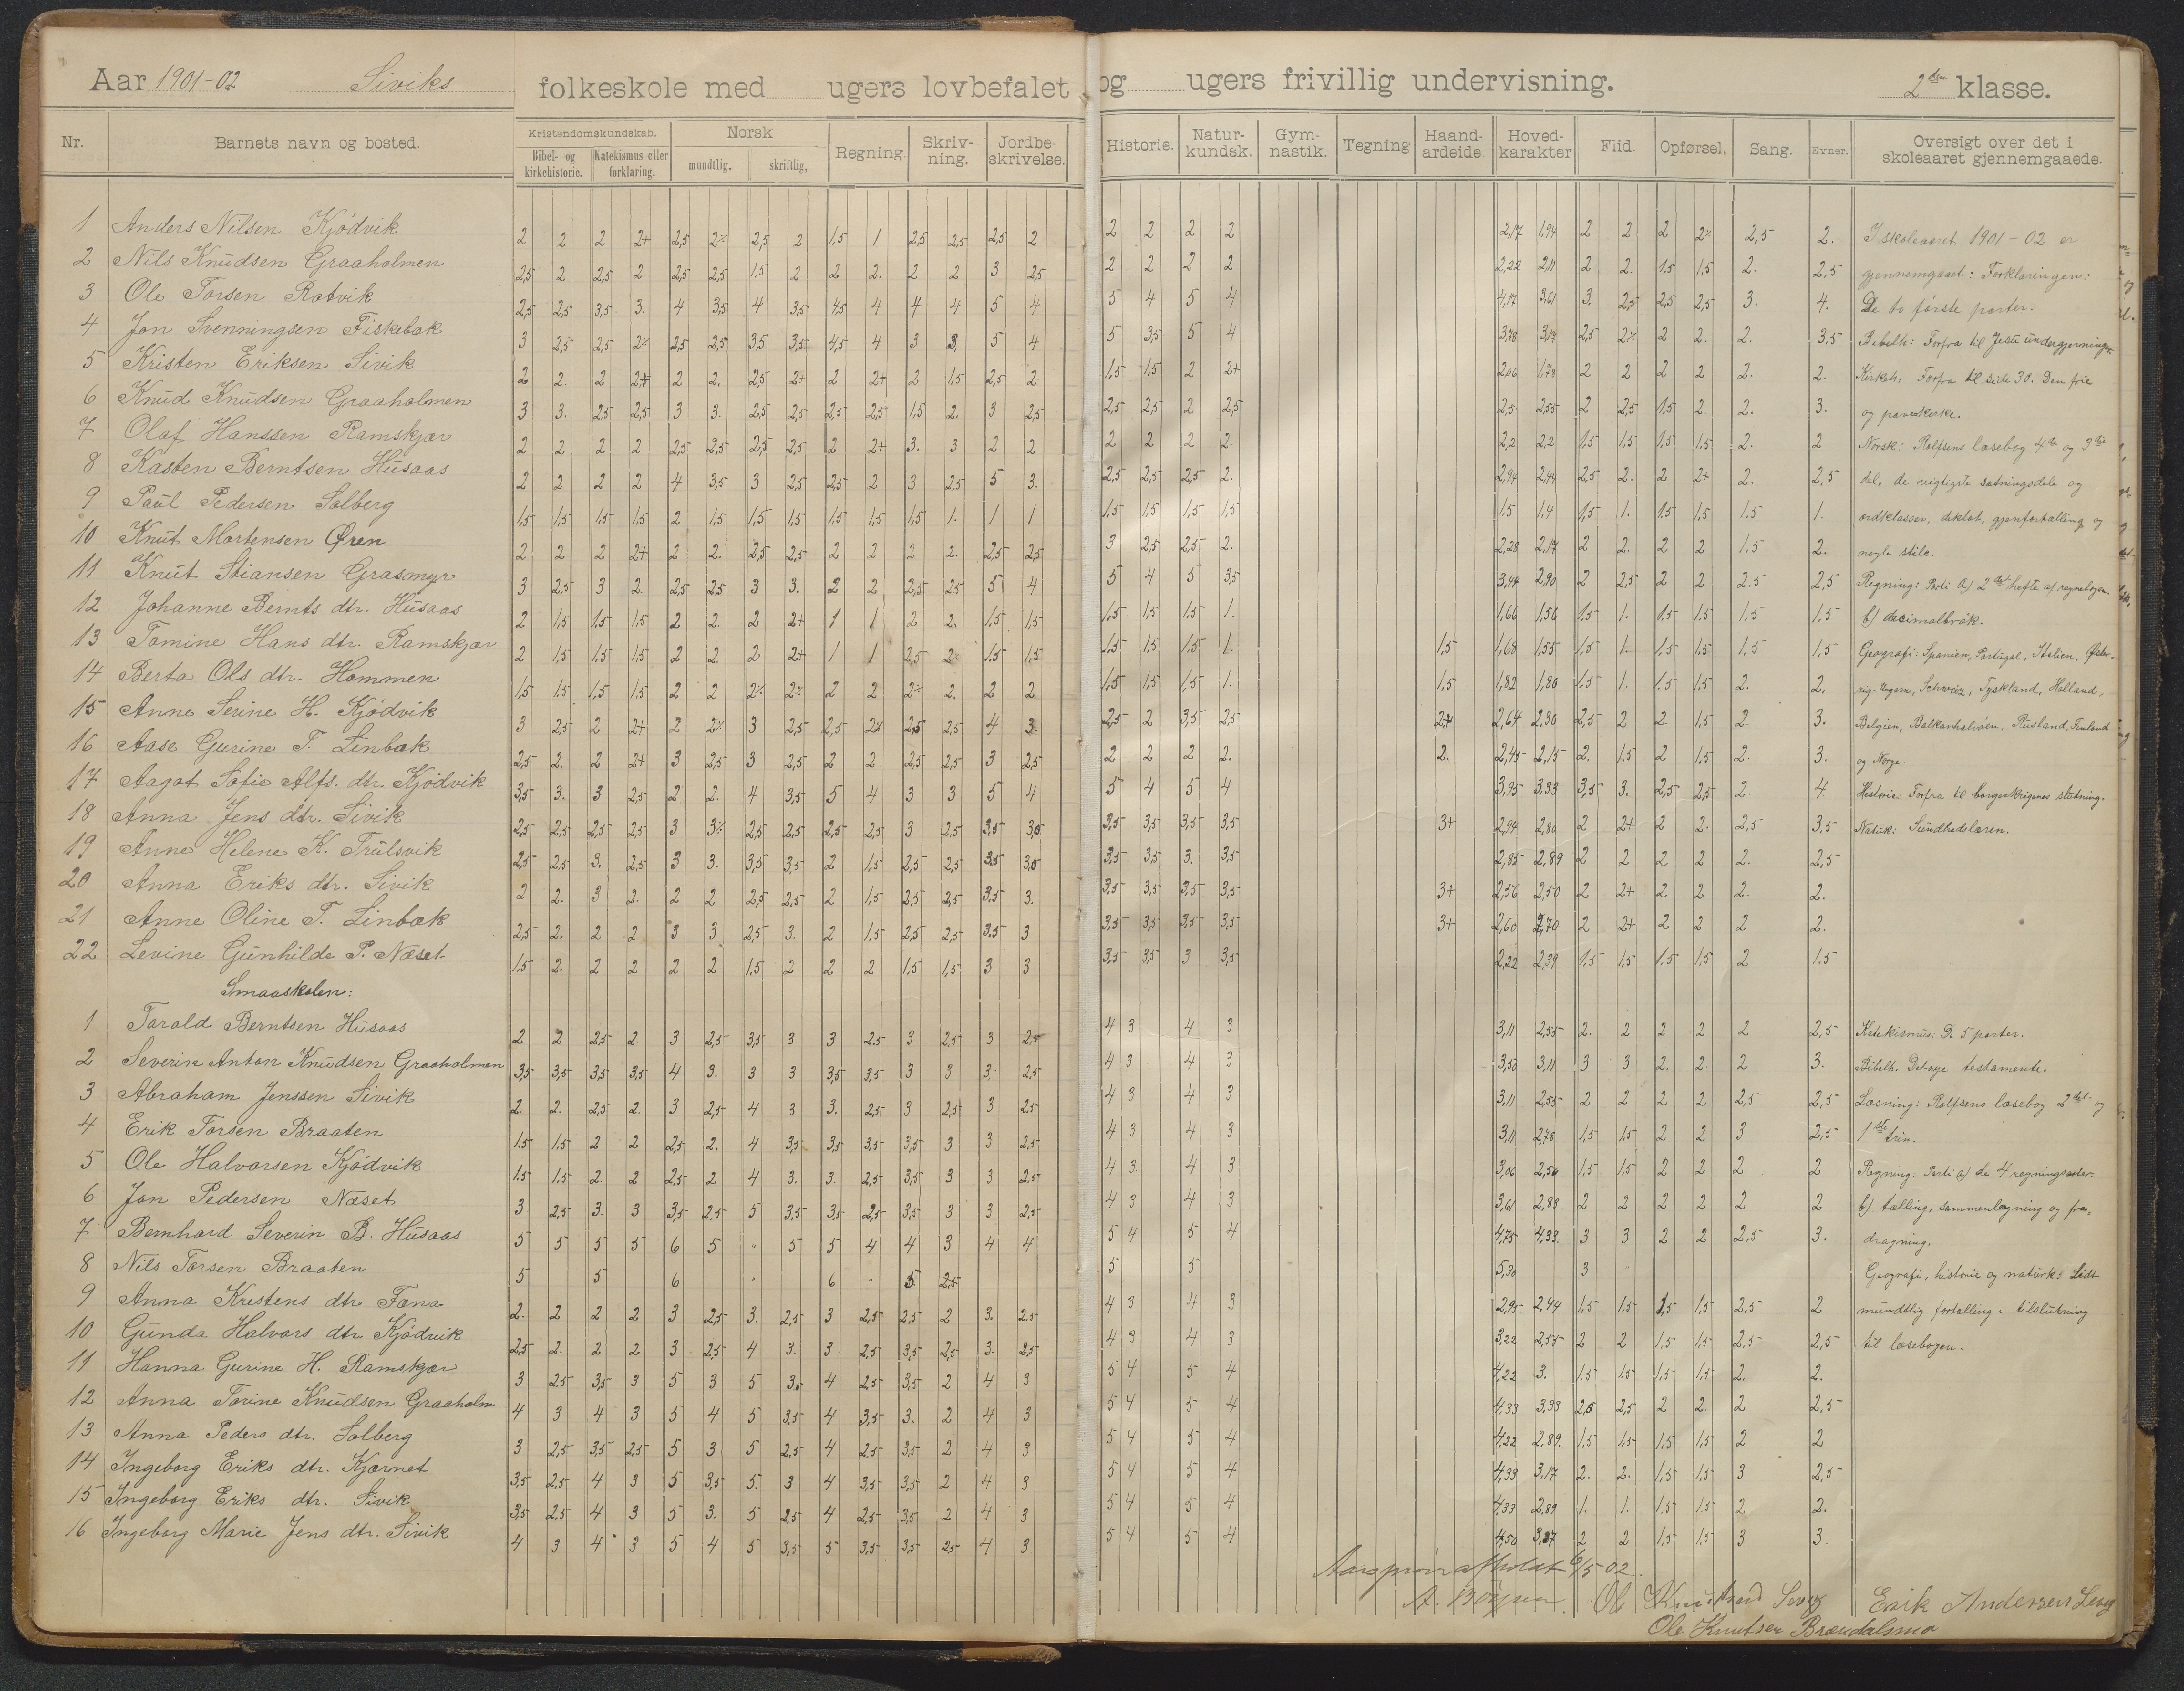 Aar 1901-02 Siviks folkeskole med ugers lovbefalet og ugers frivillig undervisning. 2den klasse.
Nr. Barnets navn og bosted. Kristendomskundskab. Norsk Regning. Skriv- ning. Jordbe- skrivelse. Historie. Natur- kundsk. Gym- nastik. Tegning Haand- arbeide Hoved- karakter Flid. Opførsel. Sang. Evner. Oversigt over det i skoleaaret gjennemgaaede.
Bibel- og kirkehistorie. Katekismus eller forklaring. mundtlig. skriftlig.
1 Anders Nilsen Kjödvik 2 2 2 2+ 2,5 2% 2,5 2 1,5 1 2,5 2,5 2,5 2 2 2 2 2 2,17 1,94 2 2 2 2% 2,5 2. I skoleaaret 1901-02 er
2 Nils Knudsen Graaholmen 2,5 2 2,5 2. 2,5 2,5 1,5 2 2 2. 2 2 3 2,5 2 2 2 2 2,22 2,11 2 2. 1.5 1,5 2. 2,5 gjennemgaaet: Forklaringen:
3 Ole Torsen Rotvik 2,5 2,5 3,5 3. 4 3,5 4 3,5 4,5 4 4 4 5 4 5 4 5 4 4,17 3,61 3. 2,5 2,5 2,5 3. 4. De to første parter.
4 Jon Svenningsen Fiskebæk 3 2,5 2,5 2% 2,5 2,5 3,5 3,5 4,5 4 3 3. 5 4 5 3,5 5 4 3,78 3,17 2,5 2% 2 2. 2. 3.5 Bibelh: Forfra til Jesu undergjerninger
5 Kristen Eriksen Sivik 2 2. 2 2+ 2 2. 2,5 2+ 2 2+ 2 1,5 2,5 2 1,5 1,5 2 2+ 2,06 1,78 2 2 2 2 2. 2. Kirkeh: Forfra til side 30. Den frie
6 Knud Knudsen Graaholmen 3 3. 2,5 2,5 3 3. 2,5 2,5 2,5 2,5 1,5 2. 3 2,5 2,5 2,5 2 2,5 2,5 2,55 2 2,5 1.5 2. 2. 3. og pavekirke.
7 Olaf Hanssen Ramskjær 2 2 2 2 2,5 2,5 2,5 2,5 2 2+ 3. 3 2 2 2 2 2 2. 2,2 2,2 1,5 1,5 1.5 1,5 2. 2 Norsk: Rolfsens læsebog 4de og 3die
8 Kasten Berntsen Husaas 2 2 2 2 4 3,5 3 2,5 2,5 2 3 2,5 5 3. 2,5 2,5 2,5 2. 2,94 2,44 2,5 2. 2 2+ 2. 2,5 del, de vigtigste sætningsdele og
9 Paul Pedersen Solberg 1,5 1,5 1,5 1,5 2 1,5 1,5 1,5 1,5 1,5 1,5 1. 1 1 1,5 1,5 1,5 1,5 1.5 1.4 1,5 1. 1.5 1,5 1.5 1. ordklasser, diktat, gjenfortælling og
10 Knut Mortensen Øren 2 2 2 2+ 2 2. 2,5 2,5 2 2 2 2. 2,5 2,5 3 2,5 2,5 2. 2,28 2,17 2 2. 2 2 1,5 2. nogle stile.
11 Knut Stiansen Grasmyr 3 2,5 3 2. 2,5 2,5 3 3. 2 2 2,5 2,5 5 4 5 4 5 3,5 3,44 2,90 2 2,5 2 2 2.5 2,5 Regning: Parti a) 2det hefte af regnebogen.
12 Johanne Bernts dtr. Husaas 2 1,5 1.5 1,5 2 2. 2 2+ 1 1 2 2. 1,5 1,5 1,5 1,5 1,5 1. 1,66 1,56 1.5 1. 1.5 1,5 1.5 1,5 b) decimalbrök.
13 Tomine Hans dtr. Ramskjær 2 1,5 1,5 1,5 2 2. 2 2+ 1 1 2,5 2% 1.5 1,5 1,5 1,5 1.5 1. 1,5 1,68 1,55 1.5 1. 1.5 1,5 1,5 1,5 Geografi: Spanien, Portugal, Italien, Øster-
14 Berta Ols dtr. Hommen 1,5 1,5 1,5 1.5 2 2 2% 2% 2 2 2% 2. 2 2 1,5 1,5 1.5 1. 1,5 1,82 1,80 1.5 1. 1.5 1,5 2. 2. rig-Ungarn, Schweiz, Tyskland, Holland,
15 Anne Serine H. Kjödvik 3 2,5 2 2+ 2 2% 3 2,5 2,5 2% 2,5 2,5 4 3. 2,5 2 3,5 2,5 2+ 2,64 2,30 2,5 2 2. 1.5 2. 3. Belgien, Balkanhalvöen, Rusland, Finland
16 Aase Gurine T. Linbæk 2,5 2. 2 2+ 3 2,5 3 2,5 2 2 2,5 2,5 3 2,5 2 2 2 2. 2. 2,45 2,15 2. 1.5 2 1,5 2. 3. og Norge.
17 Aagot Sofie Alfs. dtr. Kjödvik 3,5 3. 3 2,5 2 2. 4 3,5 5 4 3 3 5 4 5 4 5 4 3,95 3,33 3,5 3. 2,5 2,5 2. 4. Historie: Forfra til borgerkrigenes slutning.
18 Anna Jens dtr. Sivik 2,5 2,5 2,5 2,5 3 3% 2,5 2,5 2,5 2,5 3 2,5 3,5 3,5 3,5 3,5 3,5 3,5 3+ 2,94 2,80 2 2+ 2 2. 2,5 3,5 Naturk: Sundhedslæren.
19 Anne Helene K. Trulsvik 2,5 2,5 3. 2,5 3 3. 3,5 3,5 2 1,5 2,5 2,5 3,5 3,5 3,5 3,5 3. 3,5 2,85 2,89 2 2 2 2 2. 2,5
20 Anna Eriks dtr. Sivik 2 2. 3 2. 2 2 2,5 2,5 2 1,5 2,5 2,5 3,5 3. 3,5 3,5 3,5 3,5 3+ 2,56 2,50 2 2+ 2 2 2. 2.
21 Anne Oline T. Linbæk 2,5 2. 2 2 3 3 2,5 3. 2 1,5 2,5 2,5 3,5 3 3,5 3,5 3,5 3,5 3+ 2,60 2,70 2 2+ 2 2 2 2.
22 Levine Gunhilde P. Næset 1.5 2. 2 2 2 2 1,5 2 2 2 1,5 1,5 3 3 3,5 3,5 3 3,5 2,22 2,39 1.5 1,5 1.5 1,5 2 1.5
Smaaskolen:
1 Torald Berntsen Husaas 2 2 2,5 2. 3 2,5 3,5 3 3 2.5 3 2,5 3 2,5 4 3 4 3 3,11 2,55 2. 2 2 2 2 2,5 Katekismus: De 5 parter.
2 Severin Anton Knudsen Graaholmen 3,5 3,5 3,5 3,5 4 3. 3 3 3,5 3,5 3 3 3. 2,5 4 3 4 3 3,50 3,11 3 3 2. 2. 2 3. Bibelh. Det nye testamente.
3 Abraham Jenssen Sivik 2. 2. 2,5 2. 3 2,5 4 3 3. 2,5 3 2,5 3 2,5 4 3 4 3 3,11 2,55 2 2 2 2 2,5 2,5 Læsning: Rolfsens læsebog 2det og
4 Erik Torsen Braaten 1.5 1,5 2 2 2,5 2. 4 3,5 3,5 3,5 3,5 3 3 2,5 4 3 4 3 3,11 2,78 1,5 1,5 2 2 3 2,5 1ste trin.
5 Ole Halvorsen Kjödvik 1.5 1.5 2. 2 2,5 2 4 3. 3. 2,5 3,5 3 3 2.5 4 3 4 3 3,06 2,50 1.5 1.5 2 2 2 2 Regning: Parti a) de 4 regningsarter.
6 Jon Pedersen Næset 3 2,5 3. 3 3,5 2,5 5 3,5 3,5 2,5 3,5 3 3 2,5 4 3 4 3 3,61 2,83 2 2 2 2 2 2 b) tælling, sammenlægning og fra-
7 Bernhard Severin B. Husaas 5 5 5 5 6 5 " 5 5 4 4 3 4 4 5 4 5 4 4,75 4,33. 3 3 2 2 2,5 3. dragning.
8 Nils Torsen Braaten 5 5 6 " 6 - 5 2,5 5 5 5,30 3 Geografi, historie og naturk: Lidt
9 Anna Kristens dtr Fana 2. 2 2 2 3 2,5 3. 2,5 3 2,5 2,5 2 3. 2.5 4 3 4 3 2,95 2,44 1,5 1,5 1,5 1,5 2,5 2 mundtlig fortælling i tilslutning
10 Gunda Halvors dtr Kjödvik 2,5 2. 2 2 3 2,5 4 3. 3 2,5 3,5 2,5 3. 2,5 4 3 4 3 3,22 2,55 2 2 1,5 1,5 2,5 2,5 til læsebogen.
11 Hanna Gurine H. Ramskjær 3 2,5 3,5 3 5 3 5 3. 4 2,5 3,5 2 4 3 5 4 5 4 4,22 3. 1.5 1.5 1,5 1,5 2. 2.
12 Anna Torine Knudsen Graaholm 4 3 4 3 5 4 5 3,5 4 3,5 3. 2 4 3 5 4 5 4 4,33 3,33 2,5 2,5 2 2. 2 2,5
13 Anna Peders dtr. Solberg 3 2,5 3,5 2,5 5 3 5 2,5 4 2,5 3,5 2 4 3 5 4 5 4 4,22 2,89. 1.5 1.5 1,5 1,5 2 2
14 Ingeborg Eriks dtr. Kjærnet 3,5 2,5 4 3 5 3,5 5. 3 4 3,5 3,5 2 4 3 5 4 5 4 4,33 3,17 2. 2. 1,5 1,5 3 2,5
15 Ingeborg Eriks dtr. Sivik 3,5 2,5 4 3 5 3. 5 2,5 4 2,5 3,5 2 4 3 5 4 5 4 4,33 2,89 1. 1. 1.5 1.5 2 2.
16 Ingeborg Marie Jens dtr. Sivik 4 3 4 3 5 4 5 3,5 5 3,5 3,5 2,5 4 3 5 4 5 4 4,50 2 2 1,5 1,5 3 3.
Aarsprøve afholdt 6/5 02.
A. Ole Knutsen Erik Andersen
Ole Knutsen Brændalsmo